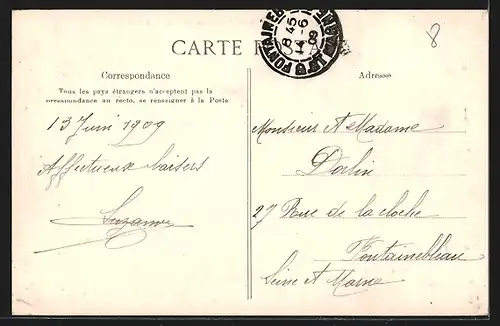 CARTE
8 45
-6
09
8
Correspondance
Tous les pays étrangers n'acceptent pas la
correspondance au recto, se renseigner à la Poste
Adresse
13 Juin 1909
Affectueux baisers
Suzanne
Monsieur et Madame
27 Rue de la cloche
Fontainebleau
Seine et Marne